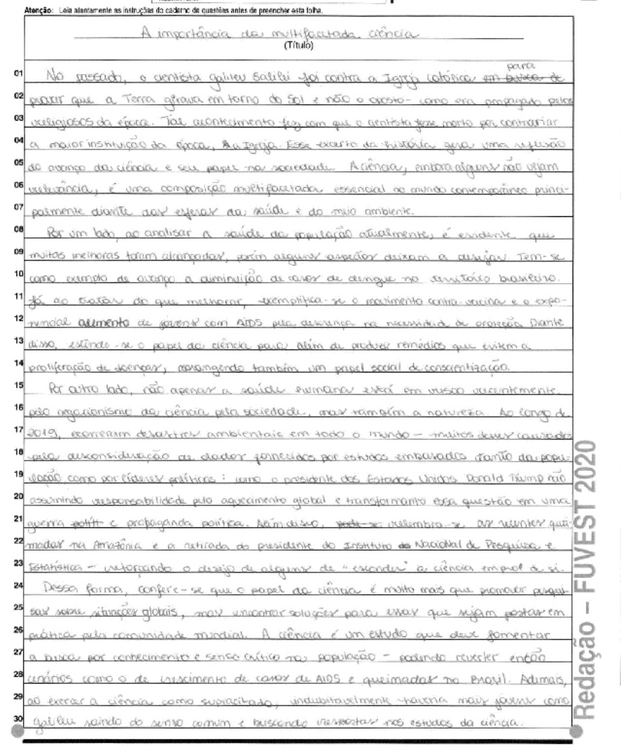 Atenção: Leia atentamente as instruções do caderno de questões antes de preencher esta folha.
A importância da multifacetada ciência
(Título)
para
01 No passado, o cientista galileu Galilei foi contra a Igreja Católica em busca de
02 provar que a Terra girava em torno do Sol e não o oposto - como era propagado pelos
03 religiosos da época. Tal acontecimento fez com que o cientista fosse morto por contrariar
04 a maior instituição da época, a Igreja. Esse excerto da história gera uma reflexão
05 do avanço da ciência e seu papel na sociedade. A ciência, embora alguns não vejam
06 relevância, é uma composição multifacetada essencial no mundo contemporâneo princi-
07 palmente diante das esferas da saúde e do meio ambiente.
08 Por um lado, ao analisar a saúde da população atualmente, é evidente que
09 muitas melhoras foram alcançadas, porém alguns aspectos deixam a desejar. Tem-se
10 como exemplo de avanço a diminuição de casos de dengue no território brasileiro.
11 Já ao tratar do que melhorar, exemplifica-se o movimento contra vacina e o expo-
12 nencial aumento de jovens com AIDS pela descrença na necessidade de proteção. Diante
13 disso, estende-se o papel da ciência para além de produzir remédios que evitem a
14 proliferação de doenças, abrangendo também um papel social de conscientização.
15 Por outro lado, não apenas a saúde humana está em risco recentemente
16 pelo negacionismo da ciência pela sociedade, mas também a natureza. Ao longo de
17 2019, ocorreram desastres ambientais em todo o mundo - muitos desses causados
18 pela desconsideração de dados fornecidos por estudos embasados tanto da popu-
19 lação como por líderes políticos: como o presidente dos Estados Unidos Donald Trump não
20 assumindo responsabilidade pelo aquecimento global e transformando essa questão em uma
21 guerra e propaganda política. Além disso, relembra-se as recentes quei-
22 madas na Amazônia e a retirada do presidente do Instituto Nacional de Pesquisa e
23 Estatística - reforçando o desejo de alguns de "esconder" a ciência em prol de si.
24 Dessa forma, confere-se que o papel da ciência é muito mais que promover pesqui-
25 sas sobre situações globais, mas encontrar soluções para essas que sejam postas em
26 prática pela comunidade mundial. A ciência é um estudo que deve fomentar
27 a busca por conhecimento e senso crítico na população - podendo reverter então
28 cenários como o de crescimento de casos de AIDS e queimadas no Brasil. Ademais,
29 ao exercer a ciência como supracitado, indubitavelmente haveria mais jovens como
30 galileu saindo do senso comum e buscando respostas nos estudos da ciência.
Redação – FUVEST 2020